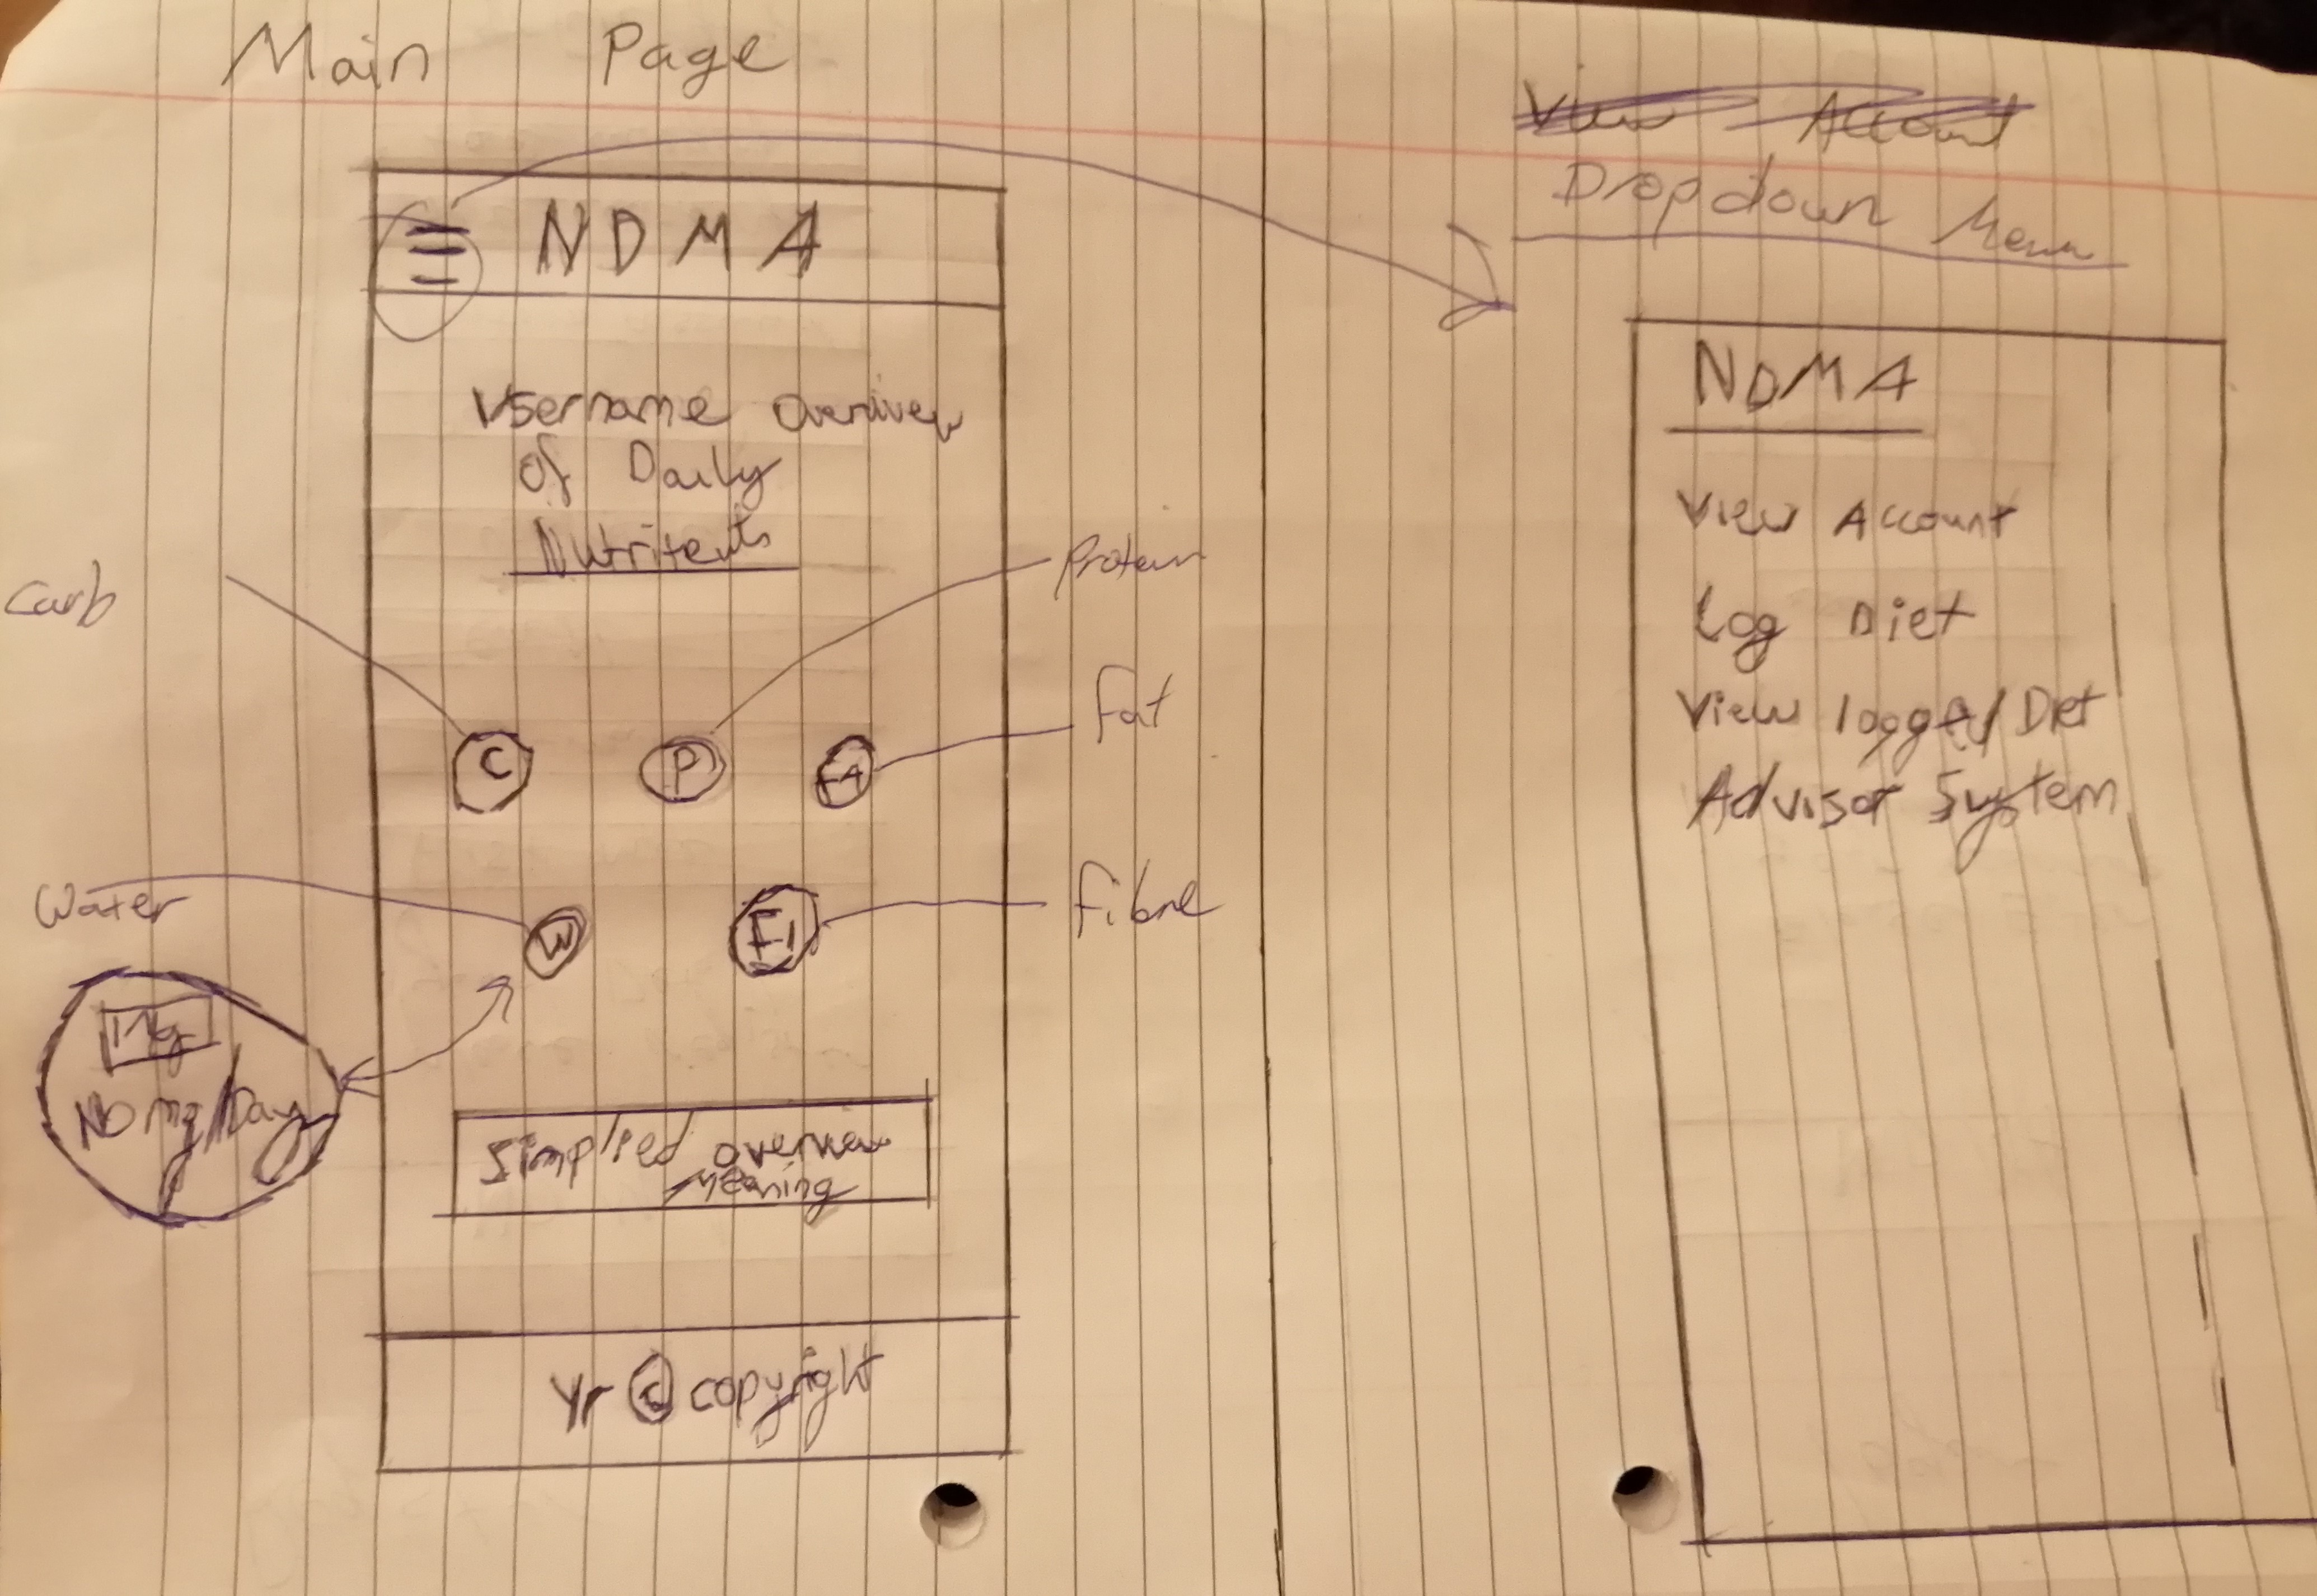 Main Page
NDMA
Username Overivew
Of Daily
Nutritents
Carb
Protein
Fat
C
P
FA
Water
Fibre
W
FI
Img
NO mg/Day
Simplied overview
Meaning
Yr © copyright
View Account
Dropdown Menu
NDMA
View Account
Log Diet
View logged Diet
Advisor System